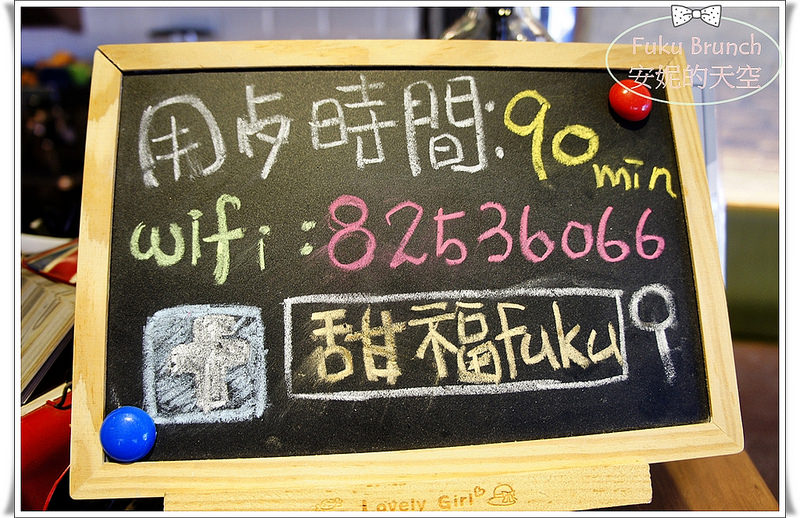 Fuku Brunch
安妮的天空
用歺時間:90min
wifi:82536066
f 甜福fuku
Lovely Girl